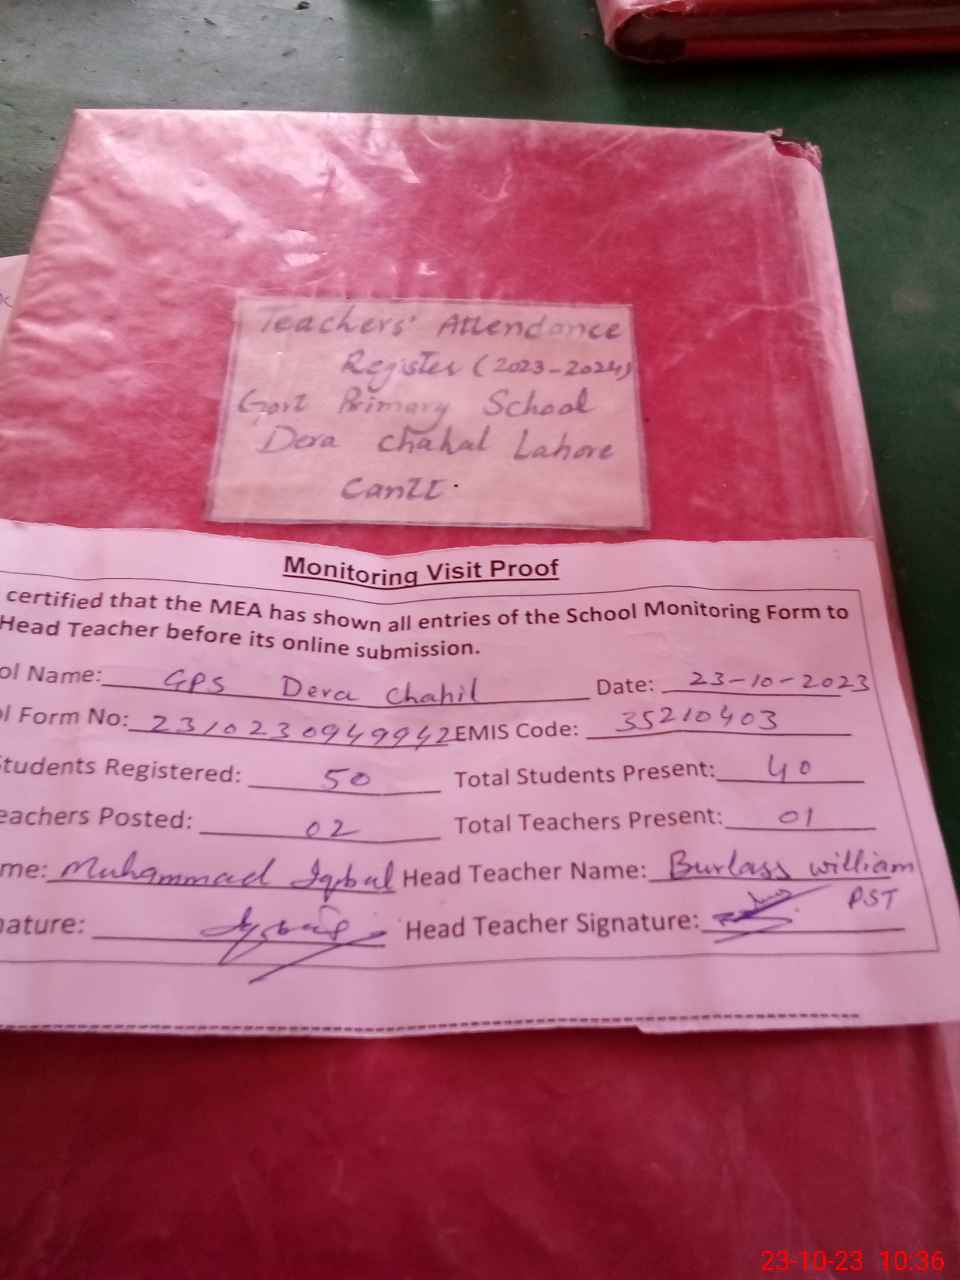 Teachers' Attendance
Register (2023-2024)
Govt Primary School
Dera chahal Lahore
Cantt.
Monitoring Visit Proof
certified that the MEA has shown all entries of the School Monitoring Form to
Head Teacher before its online submission.
ol Name: GPS Dera Chahil Date: 23-10-2023
ol Form No: 2310230949942 EMIS Code: 35210403
Students Registered: 50 Total Students Present: 40
eachers Posted: 02 Total Teachers Present: 01
me: Muhammad Iqbal Head Teacher Name: Burlass william
PST
nature: Head Teacher Signature:
23-10-23 10:36